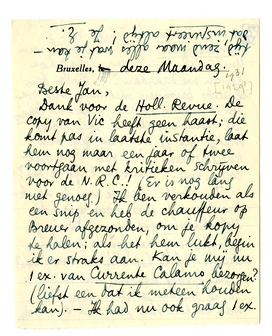 tijd zend maar alles wat je ken —
dat inspireert altijd! Je E.
Bruxelles, deze Maandag.
1931
[1929?]
Beste Jan,
Dank voor de Holl. Revue. De
copy van Vic heeft geen haast; die
komt pas in laatste instantie, laat
hem nog maar een jaar of twee
voortgaan met kritieken schrijven
voor de N.R.C.! (Er is nog lang
niet genoeg.) Ik ben verkouden als
een snip en heb de chauffeur op
Breuer afgezonden, om je kopy
te halen; als het hem lukt, begin
ik er straks aan. Kan je mij nu
1 ex. van Currente Calamo bezorgen?
(liefst een dat ik meteen houden
kan). — Ik had nu ook graag 1 ex.